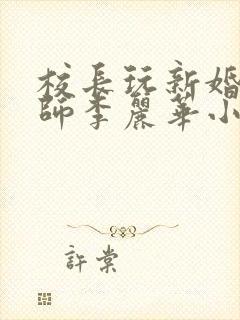 校長玩新婚
師李麗華小
許棠